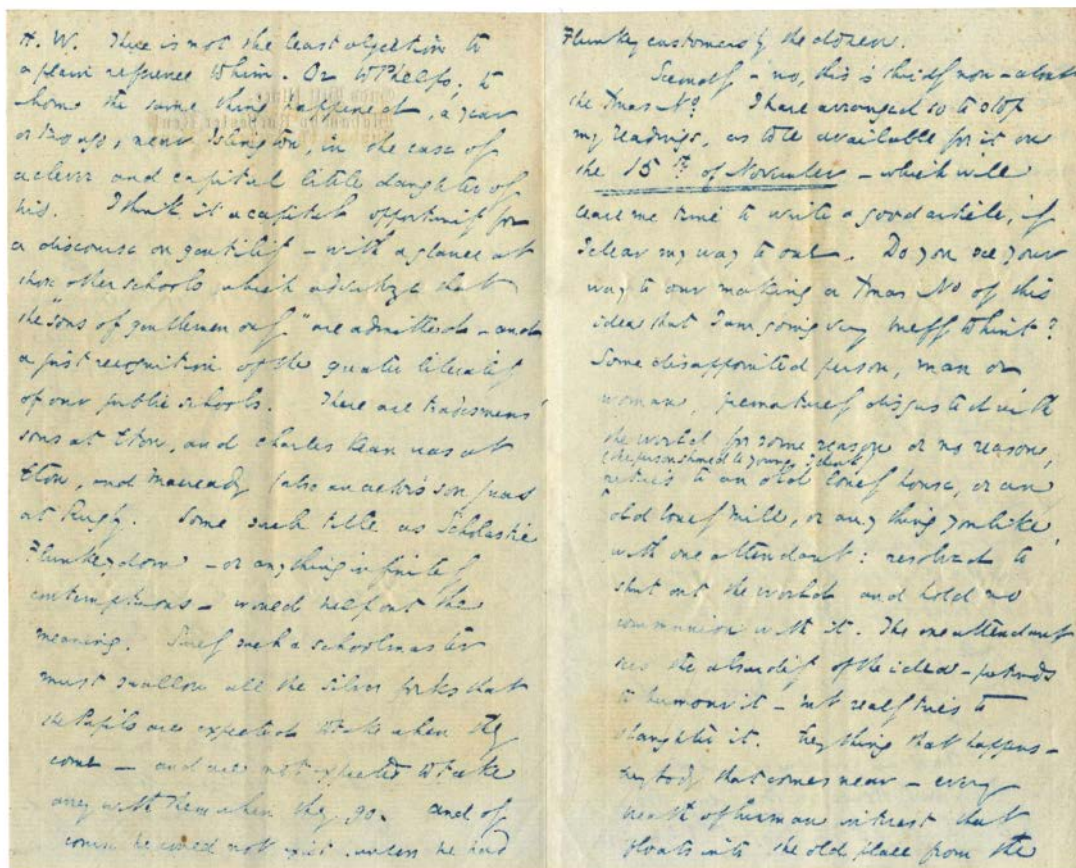 H. W. There is not the least objection to
a plain reference to him. Or to Phelps, to
whom the same thing happened, a year
or two ago, near Islington, in the case of
a clever and capital little daughter of
his. I think it a capital opportunity for
a discourse on gentility – with a glance at
those other schools which advertize that
the "sons of gentlemen only" are admitted – and
a just recognition of the greater liberality
of our public schools. There are tradesmens'
sons at Eton, and Charles Kean was at
Eton, and Macready (also an actor's son) was
at Rugby. Some such title as Scholastic
Flunkeydom – or anything infinitely
contemptuous – would help out the
meaning. Surely such a schoolmaster
must swallow all the silver forks that
the Pupils are expected to take when they
come – and are not expected to take
away with them when they go. And of
course he could not exist, unless he had
Flunkey customers by the dozen.
Secondly – no, this is thirdly now – about
the Xmas No. I have arranged so to stop
my readings, as to be available for it on
the 15th of November – which will
leave me time to write a good article, if
I clear my way to one. Do you see your
way to our making a Xmas No of this
idea that I am going very briefly to hint?
Some disappointed person, man or
woman, prematurely disgusted with
the world for some reason or no reason,
(the person should be young, I think)
retires to an old lonely house, or an
old lonely mill, or any thing you like,
with one attendant: resolved to
shut out the world and hold no
communion with it. The one attendant
sees the absurdity of the idea – pretends
to humour it – but really tries to
slaughter it. Everything that happens –
everybody that comes near – every
breath of human interest that
floats into the old place from the